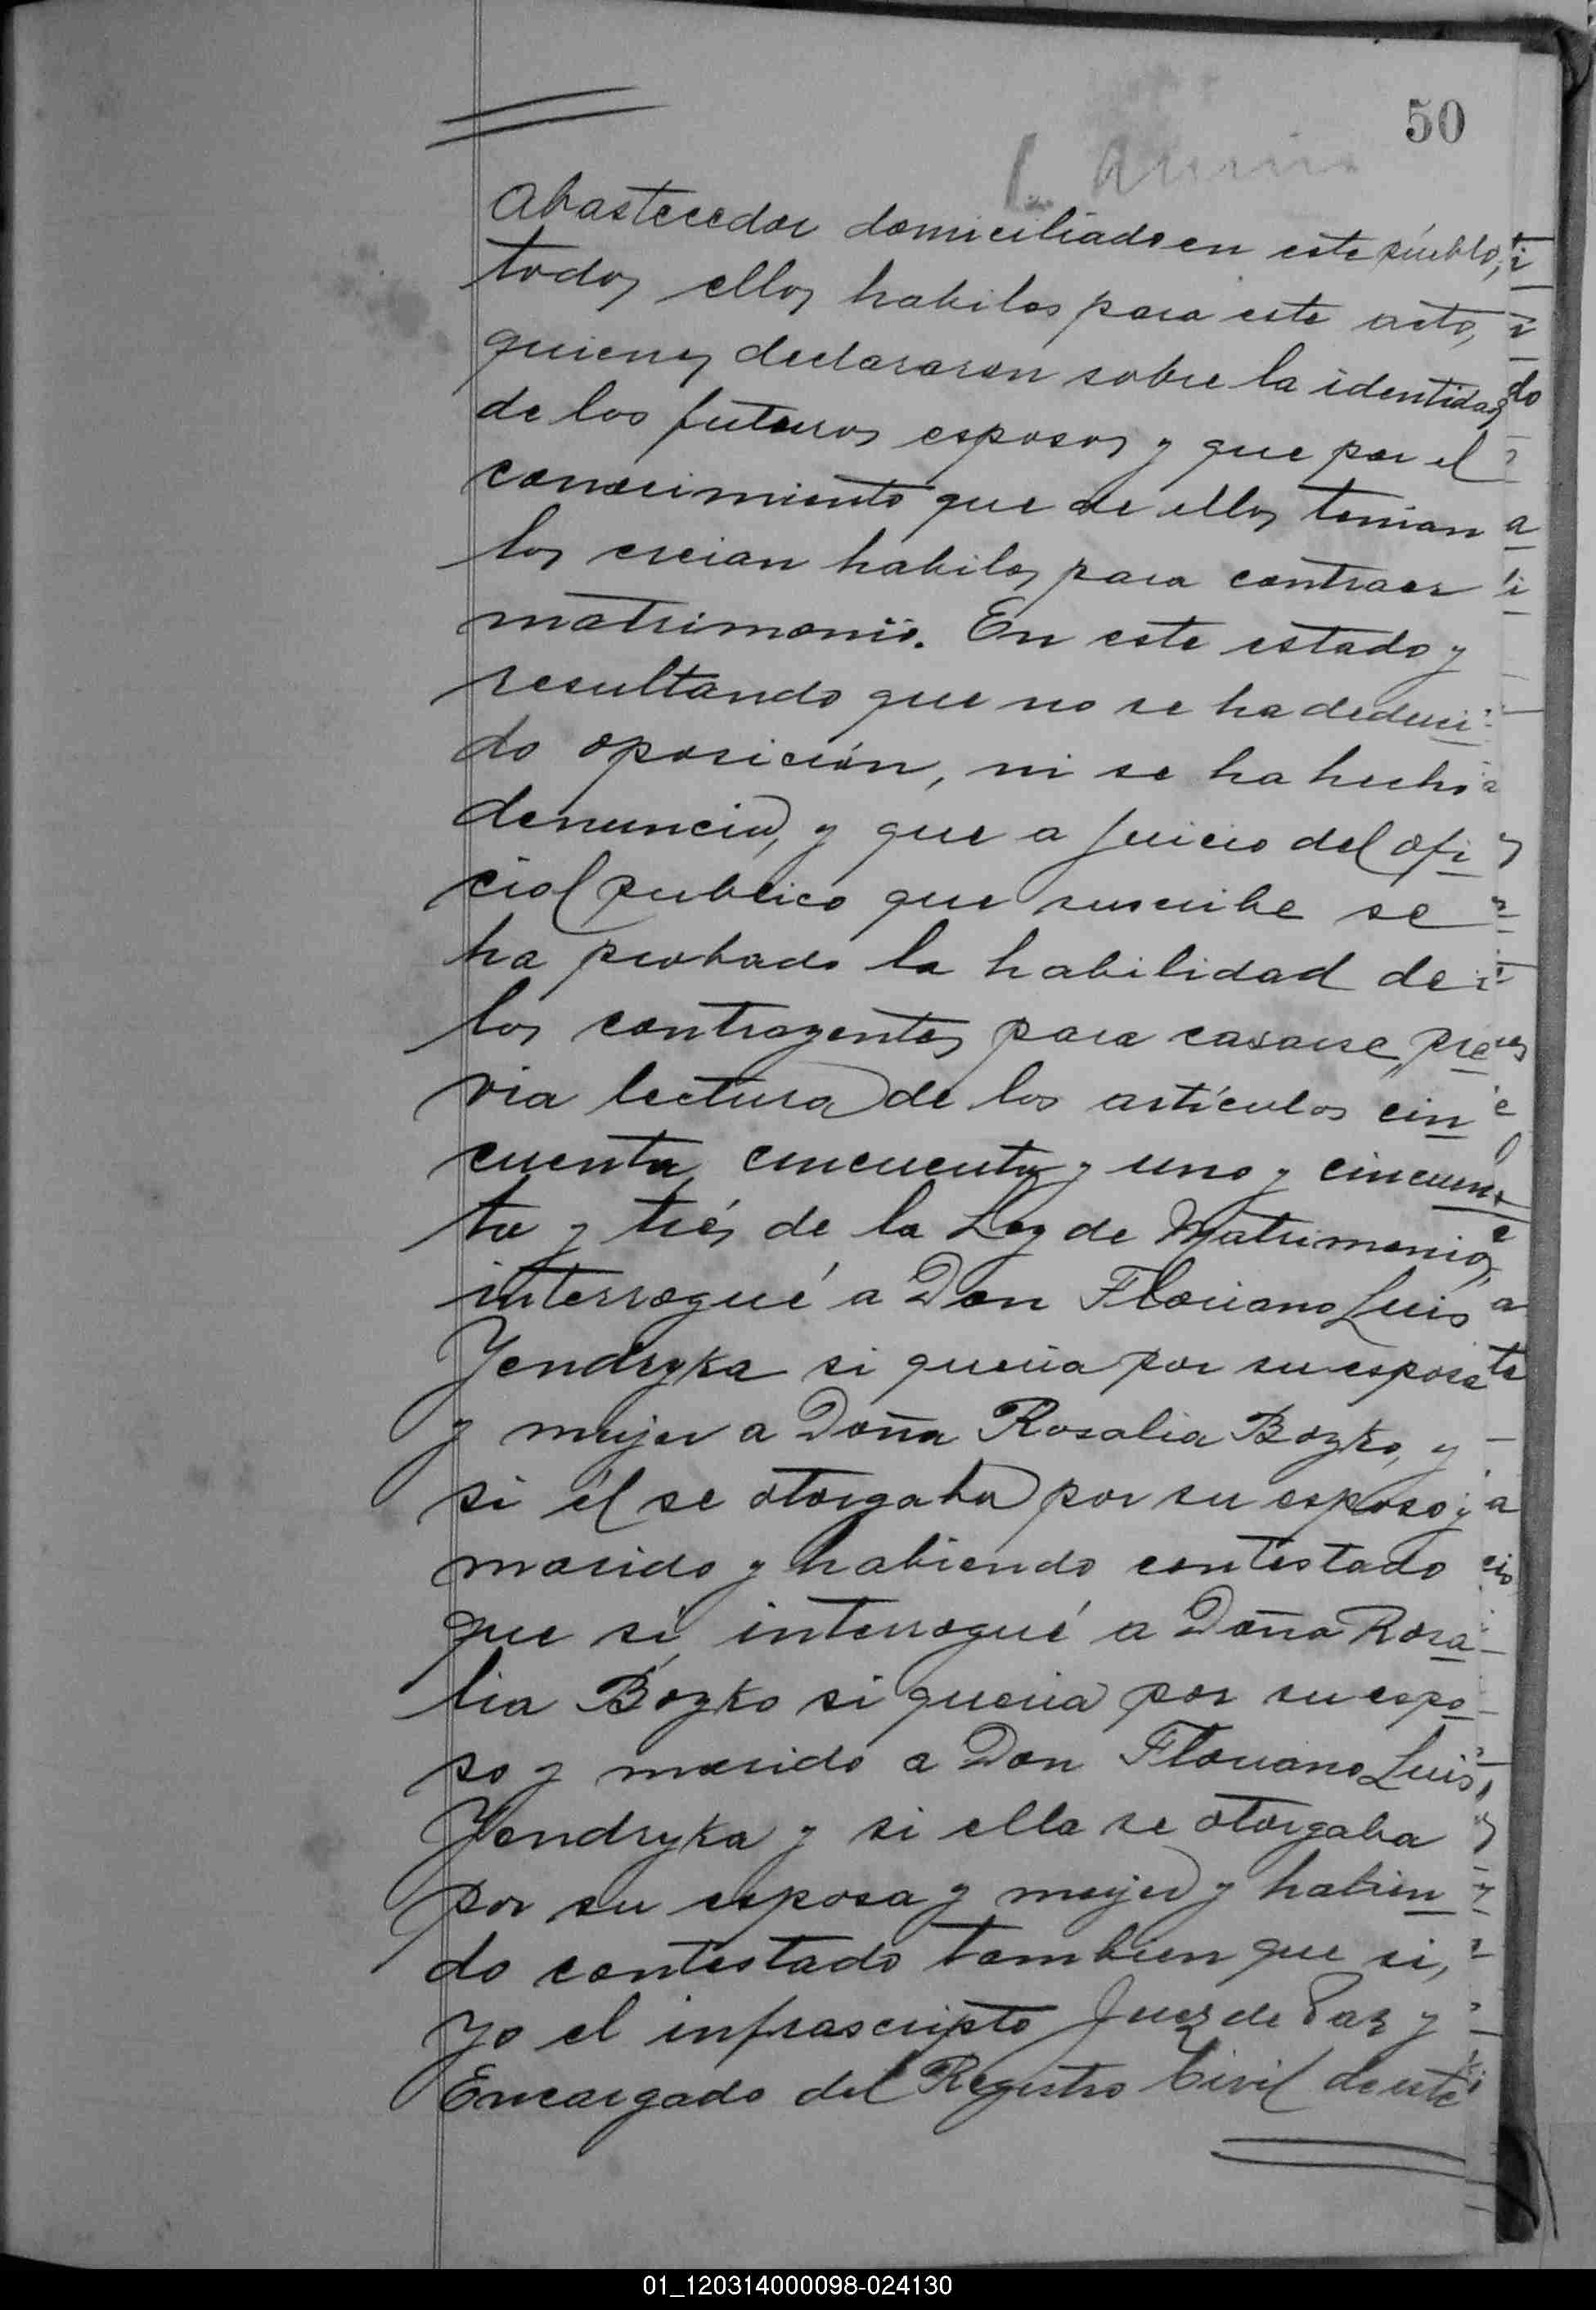 50
Abastecedor domiciliado en este pueblo,
todos ellos habiles para este acto,
quienes declararon sobre la identidad
de los futuros esposos y que por el
conocimiento que de ellos tenian
los creian habiles para contraer
matrimonio. En este estado y
resultando que no se ha deduci
do oposición, ni se ha hecho
denuncia, y que a juicio del ofi
cial publico que suscribe se
ha probado la habilidad de
los contrayentes para casarse, pre
via lectura de los artículos cin
cuenta, cincuenta y uno y cincuen
ta y trés de la Ley de Matrimonio,
interrogué a Don Floriano Luis
Yendryka si queria por su esposa
y mujer a Doña Rosalia Bozko, y
si él se otorgaba por su esposo y
marido y habiendo contestado
que sí, interrogué a Doña Rosa
lia Bozko si queria por su espo
so y marido a Don Floriano Luis
Yendryka y si ella se otorgaba
por su esposa y mujer y habien
do contestado tambien que si,
yo el infrascripto Juez de Paz y
Encargado del Registro Civil de este
01_120314000098-024130